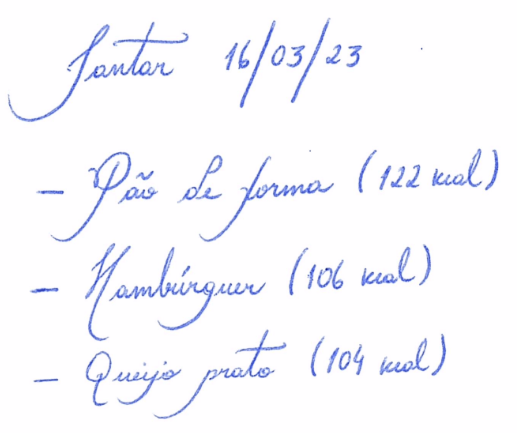 Jantar 16/03/23
- Pão de forma (122 kcal)
- Hambúrguer (106 kcal)
- Queijo prato (104 kcal)